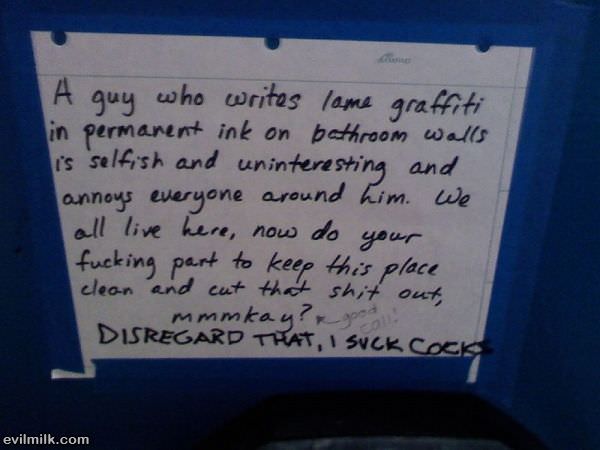 A guy who writes lame graffiti
in permanent ink on bathroom walls
is selfish and uninteresting and
annoys everyone around him. We
all live here, now do your
fucking part to keep this place
clean and cut that shit out,
mmmkay? good call!
DISREGARD THAT, I SUCK COCKS
evilmilk.com